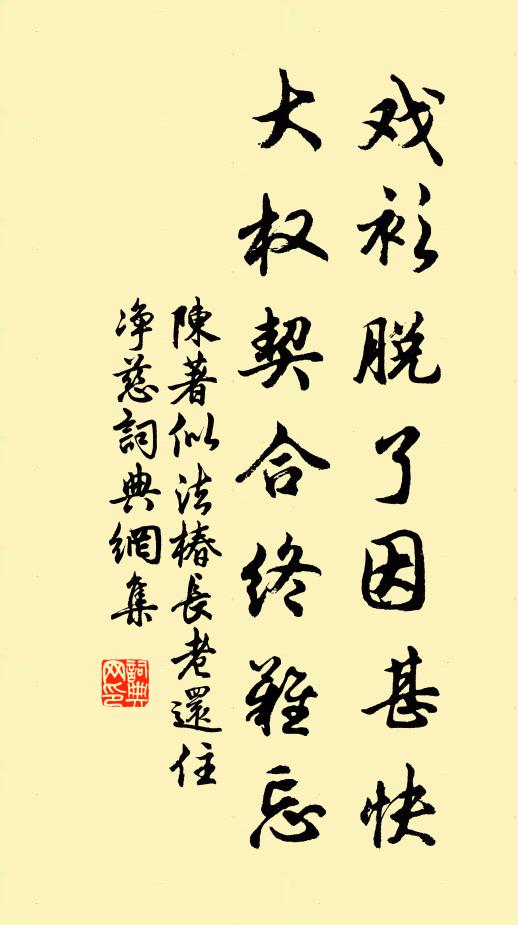 戏衫脱了因甚快
大权契合终难忘
陳著似法椿長老還住
净慈詞典網集
詞典网印